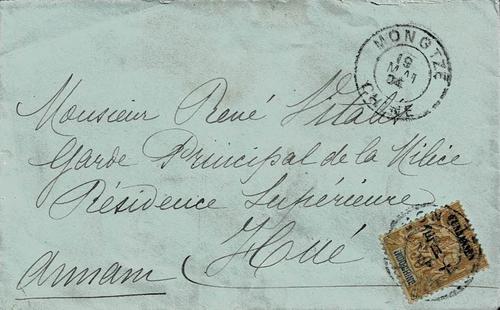 MONGTZE
CHINE
Monsieur René Vitaux
Garde Principal de la Milice
Résidence Supérieure
Hué
Annam